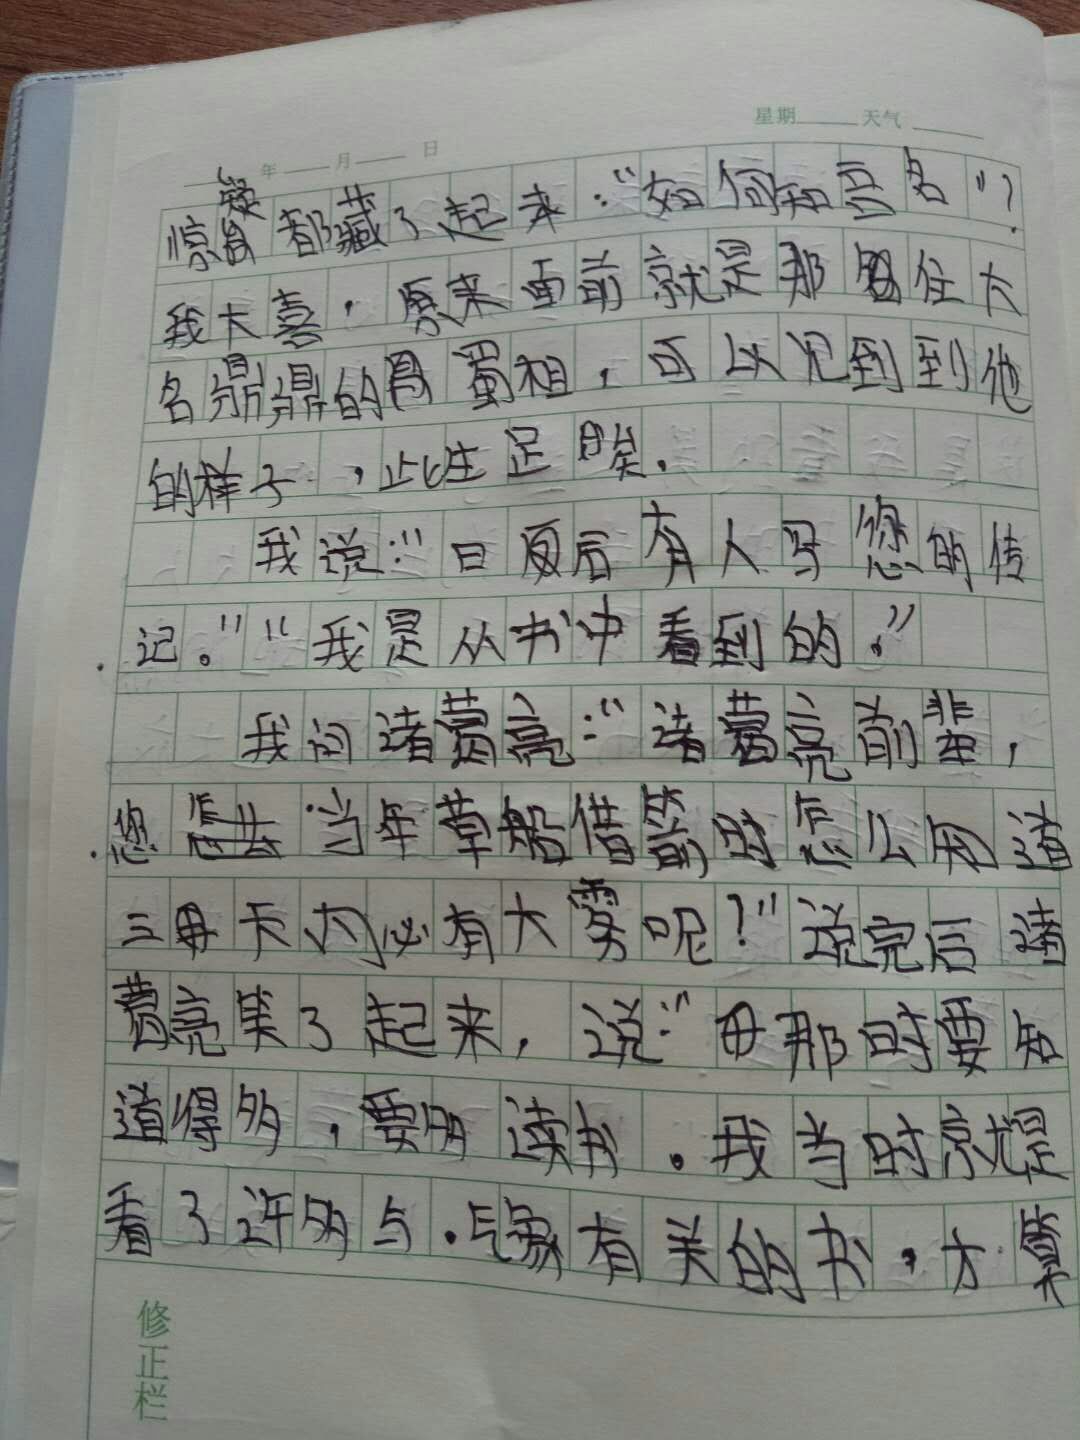 年 月 日 星期 天气
惊疑都藏了起来:“如何知吾名”?
我大喜,原来面前就是那位大
名鼎鼎的蜀相,可以见到到他
的样子,此生足矣.
我说:“日后有人写您的传
记。”“我是从书中看到的。”
我问诸葛亮:“诸葛亮前辈,
您当年草船借箭时怎么知道
三日之内必有大雾呢?”说完后诸
葛亮笑了起来,说:“那时要知
道得多,要多读书。我当时就是
看了许多与气象有关的书,才算
修正栏